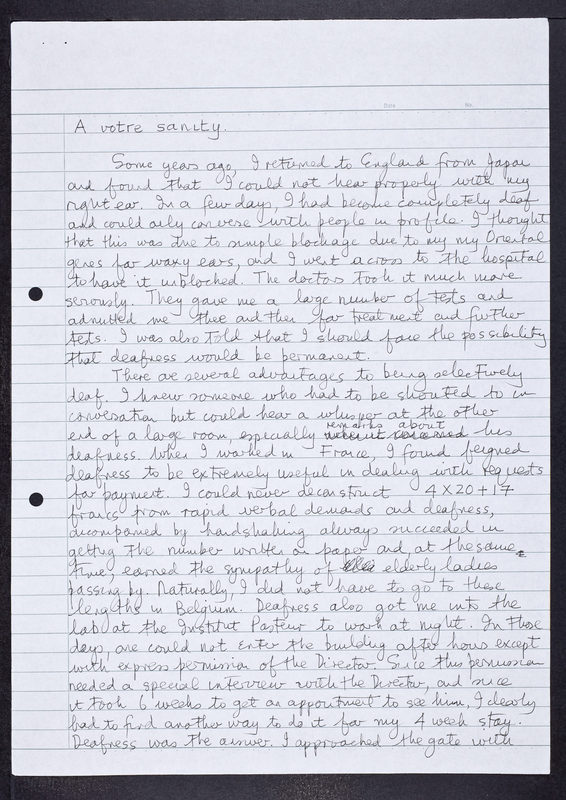 Date No.
A votre sanity.
Some years ago, I returned to England from Japan
and found that I could not hear properly with my
right ear. In a few days, I had become completely deaf
and could only converse with people in profile. I thought
that this was due to simple blockage due to my my Oriental
genes for waxy ears, and I went across to the hospital
to have it unblocked. The doctors took it much more
seriously. They gave me a large number of tests and
admitted me there and then for treatment and further
tests. I was also told that I should face the possibility
that deafness would be permanent.
There are several advantages to being selectively
deaf. I knew someone who had to be shouted to in
conversation but could hear a whisper at the other
end of a large room, especially remarks about his
deafness. When I worked in France, I found feigned
deafness to be extremely useful in dealing with requests
for payment. I could never deconstruct 4 X 20 + 17
francs from rapid verbal demands and deafness,
accompanied by handshaking always succeeded in
getting the number written on paper and, at the same
time, earned the sympathy of elderly ladies
passing by. Naturally, I did not have to go to these
lengths in Belgium. Deafness also got me into the
lab at the Institut Pasteur to work at night. In those
days, one could not enter the building after hours except
with express permission of the Director. Since this permission
needed a special interview with the Director, and since
it took 6 weeks to get an appointment to see him, I clearly
had to find another way to do it for my 4 week stay.
Deafness was the answer. I approached the gate with